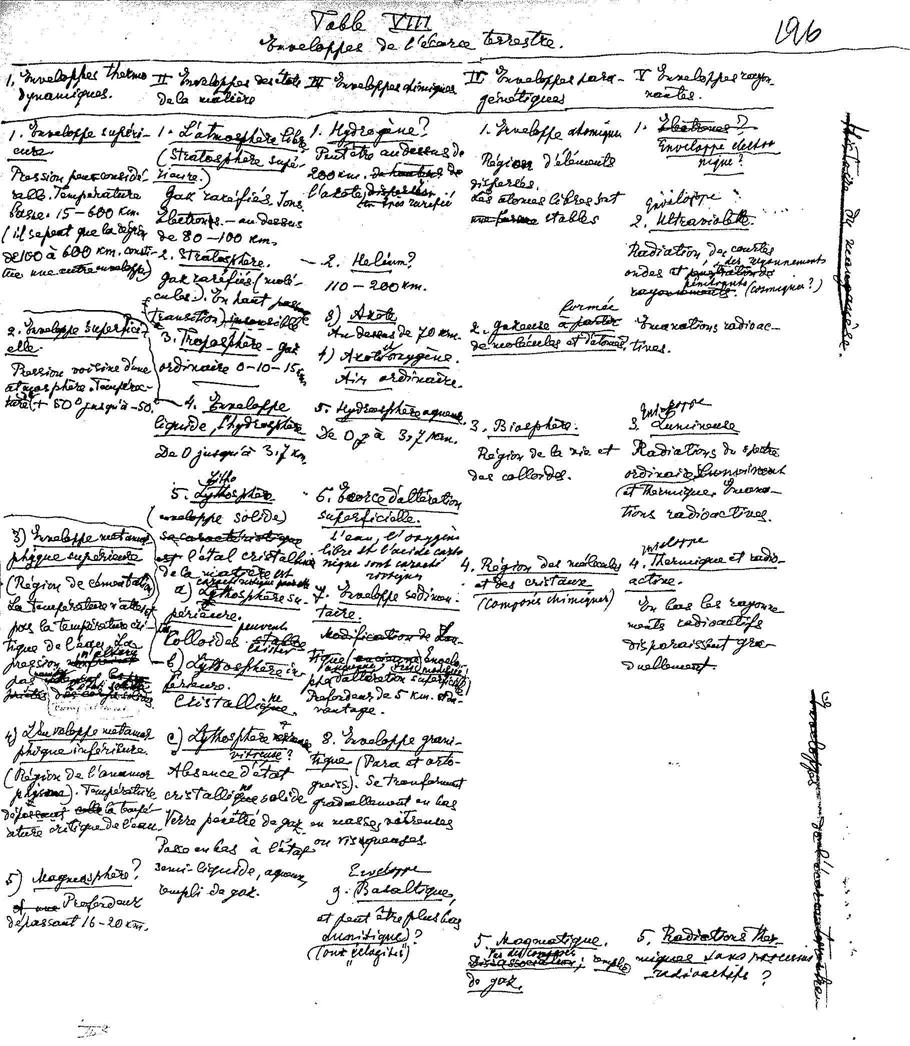 Table VIII
196
Enveloppes de l'écorce terrestre.
1. Enveloppes thermo
dynamiques.
1. Enveloppe supéri-
eure
Pression peu considé-
rable. Température
basse. 15-600 km.
(il se peut que la région
de 100 à 600 km. consti-
tue une autre enveloppe)
2. Enveloppe superfici-
elle.
Pression voisine d'une
atmosphère. Tempéra-
ture (+50° jusqu'à -50°
3) Enveloppe métamor
phique supérieure
(Région de cémentation)
La température n'atteint
pas la température cri-
tique de l'eau. La
pression
pas
4) L'Enveloppe métamor
phique inférieure.
(Région de l'anamor
phisme). Température
dépassant la tempé-
rature critique de l'eau.
5) Magmosphère?
Profondeur
dépassant 16-20 km.
II Enveloppes des états
de la matière
1. L'Atmosphère libre
(Stratosphère supé-
rieure.)
Gaz raréfiés. Ions
Electrons. - au dessus
de 80-100 km.
2. Stratosphère.
Gaz raréfiés (molé-
cules). En haut
transition) insensible
3. Troposphère - gaz
ordinaire 0-10-15 km
4. Enveloppe
liquide, l'hydrosphère
De 0 jusqu'à 3,7 km.
Litho
5. Lythosphère
(enveloppe solide)
sa caractéristique
est l'état cristallin
de la matière est
a) Lythosphère su-
périeure.
Colloïdes peuvent
b) Lythosphère in-
férieure.
Cristallique.
c) Lythosphère
vitreuse?
Absence d'état
cristallique solide
Verre pénétré de gaz
Passe en bas à l'état
semi-liquide, aqueux,
rempli de gaz.
III Enveloppes chimiques
1. Hydrogène?
Peut être au dessus de
200 km.
l'azote
très raréfié
2. Helium?
110-200 km.
3) Azote
Au dessus de 70 km.
4) Azote et oxygène.
Air ordinaire.
5. Hydrosphère aqueuse
De 0 à 3,7 km.
6. Ecorce d'altération
superficielle.
L'eau, l'oxygène
libre et l'acide carbo
nique sont caracté
ristiques
7. Enveloppe sédimen-
taire.
Modification de
d'altération superficielle
Profondeur de 5 km. et da-
vantage.
8. Enveloppe grani-
tique (Para et orto-
gneiss). Se transforment
graduellement en bas
en masses vitreuses
ou visqueuses.
Enveloppe
9. Basaltique,
et peut être plus bas
dunitique)?
(ou "éclogites")
IV Enveloppes para-
génétiques
1. Enveloppe atomique
Région d'éléments
dispersés.
Les atomes libres sont
stables
2. Gazeuse formée
de molécules et d'atomes.
3. Biosphère.
Région de la vie et
des colloïdes.
4. Région des molécules
et des cristaux
(Composés chimiques)
5. Magmatique.
Dissassociation; rempli
de gaz.
V Enveloppes rayon-
nantes.
1. Electrones?
Enveloppe electro
nique?
Enveloppe
2. Ultraviolette.
Radiation de courtes
ondes et
des rayonnements
pénétrants (cosmiques?)
Emanations radioac-
tives.
Enveloppe
3. Lumineuse
Radiations du spectre
ordinaire
et thermique. Emana-
tions radioactives.
Enveloppe
4. Thermique et radio-
active.
En bas les rayonne-
ments radioactifs
disparaissent gra-
duellement.
5. Radiations ther-
miques sans processus
radioactifs?
Histoire du manganèse.
9 Enveloppes de l'écorce terrestre